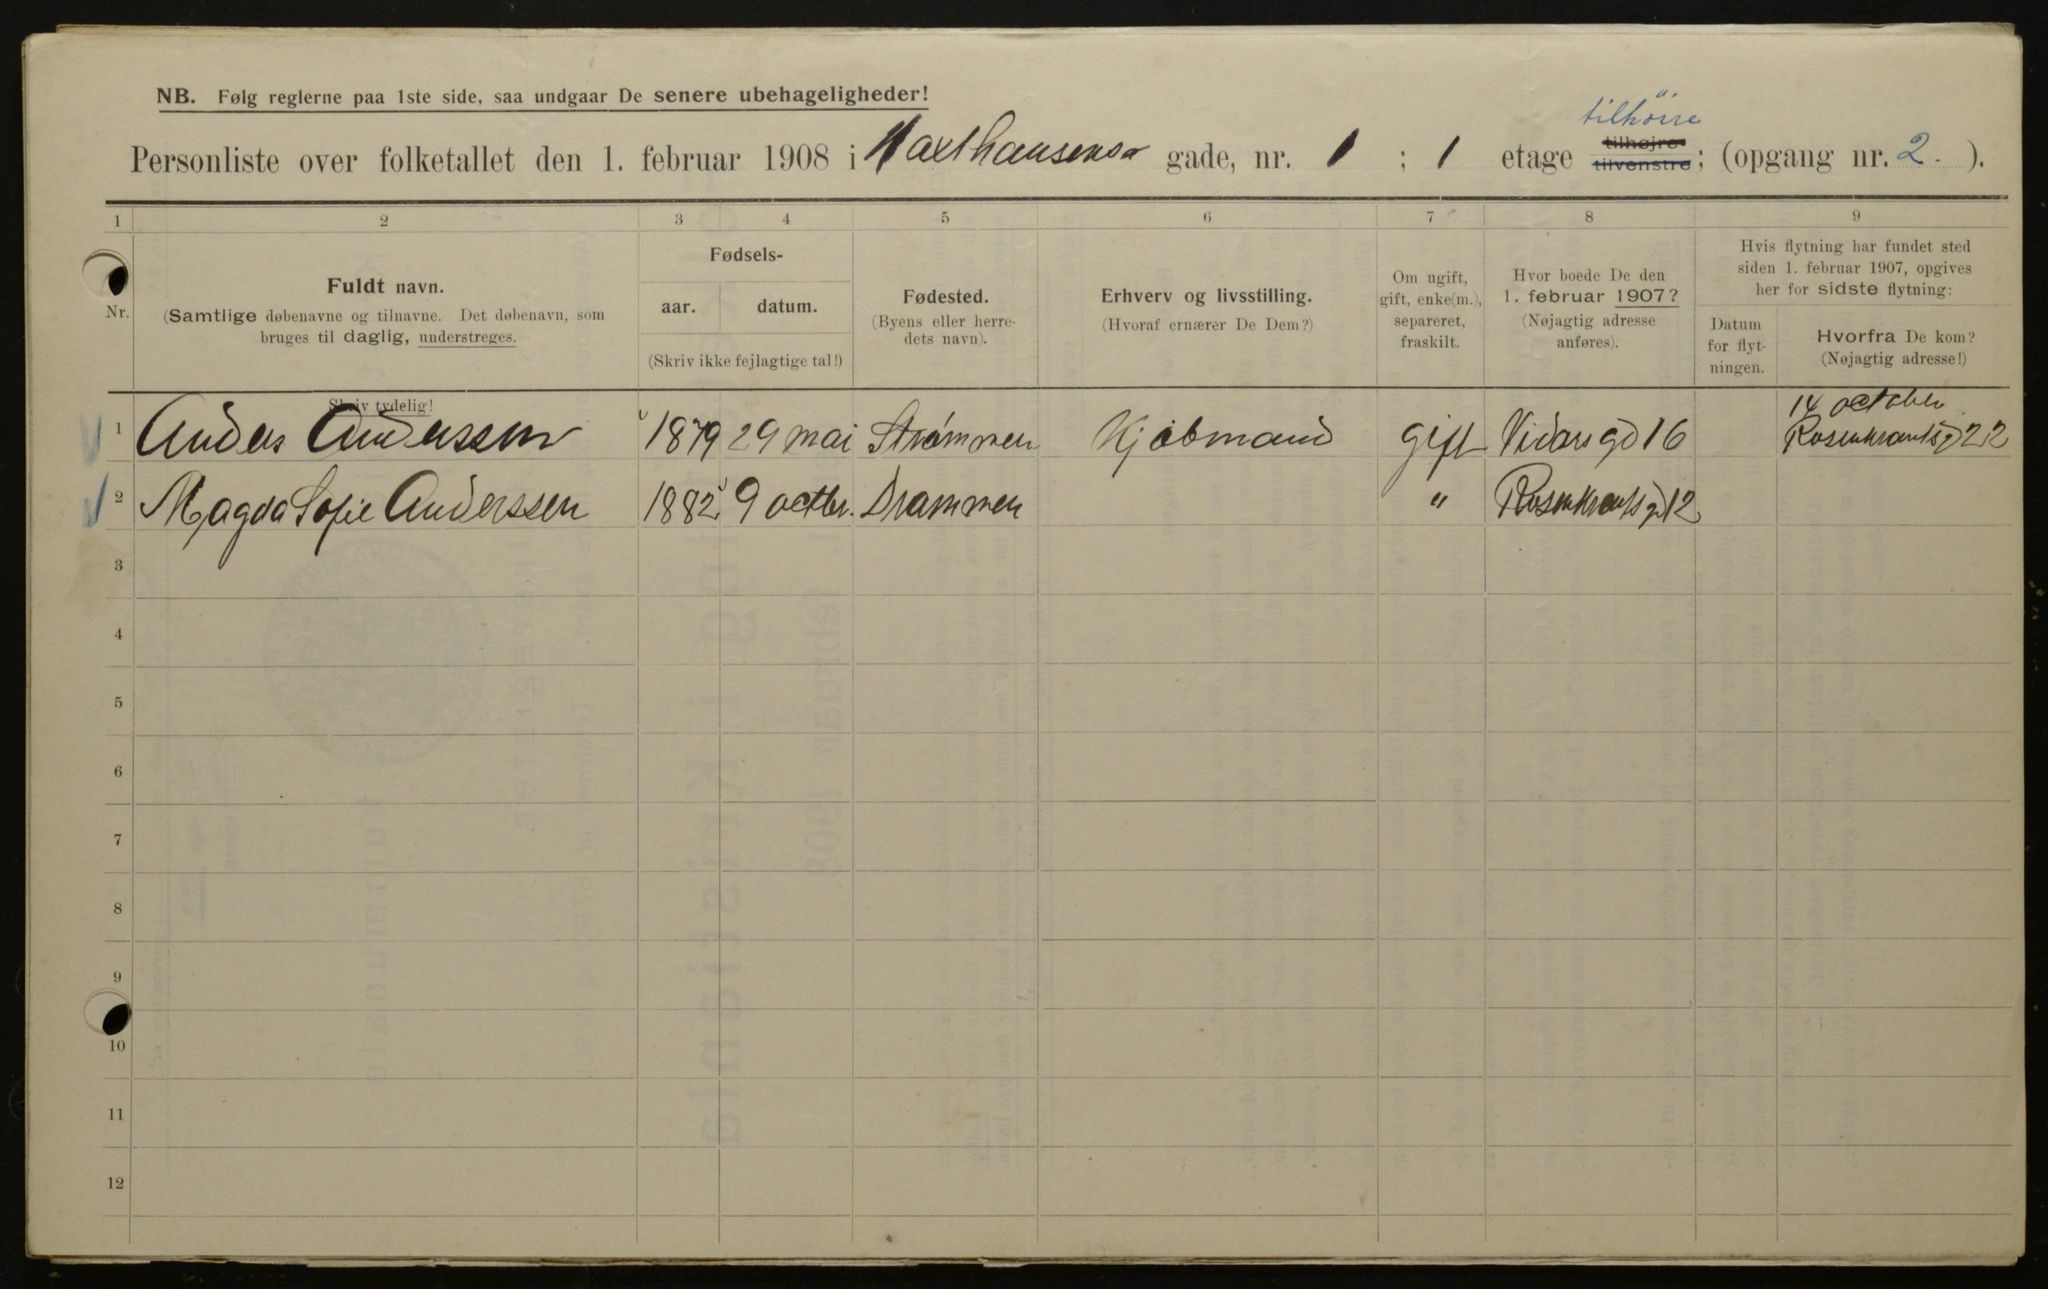 NB. Følg reglerne paa 1ste side, saa undgaar De senere ubehageligheder!
tilhöire
Personliste over folketallet den 1. februar 1908 i Haxthausens gade, nr. 1 ; 1 etage tilhøjre tilvenstre; (opgang nr. 2. ).
1 2 3 4 5 6 7 8 9
Nr.
Fuldt navn.
(Samtlige døbenavne og tilnavne. Det døbenavn, som
bruges til daglig, understreges.
Skriv tydelig!
Fødsels-
aar. datum.
(Skriv ikke fejlagtige tal!)
Fødested.
(Byens eller herre-
dets navn).
Erhverv og livsstilling.
(Hvoraf ernærer De Dem?)
Om ugift,
gift, enke(m.),
separeret,
fraskilt.
Hvor boede De den
1. februar 1907?
(Nøjagtig adresse
anføres).
Hvis flytning har fundet sted
siden 1. februar 1907, opgives
her for sidste flytning:
Datum
for flyt-
ningen.
Hvorfra De kom?
(Nøjagtig adresse!)
14 october
1 Anders Anderssen 1879 29 mai Strømmen Kjøbmand gift Vidars gd 16 Rosenkrantsgd 22
2 Magda Sofie Anderssen 1882 9 octbr. Drammen " Rosenkrantsgd 12
3
4
5
6
7
8
9
10
11
12